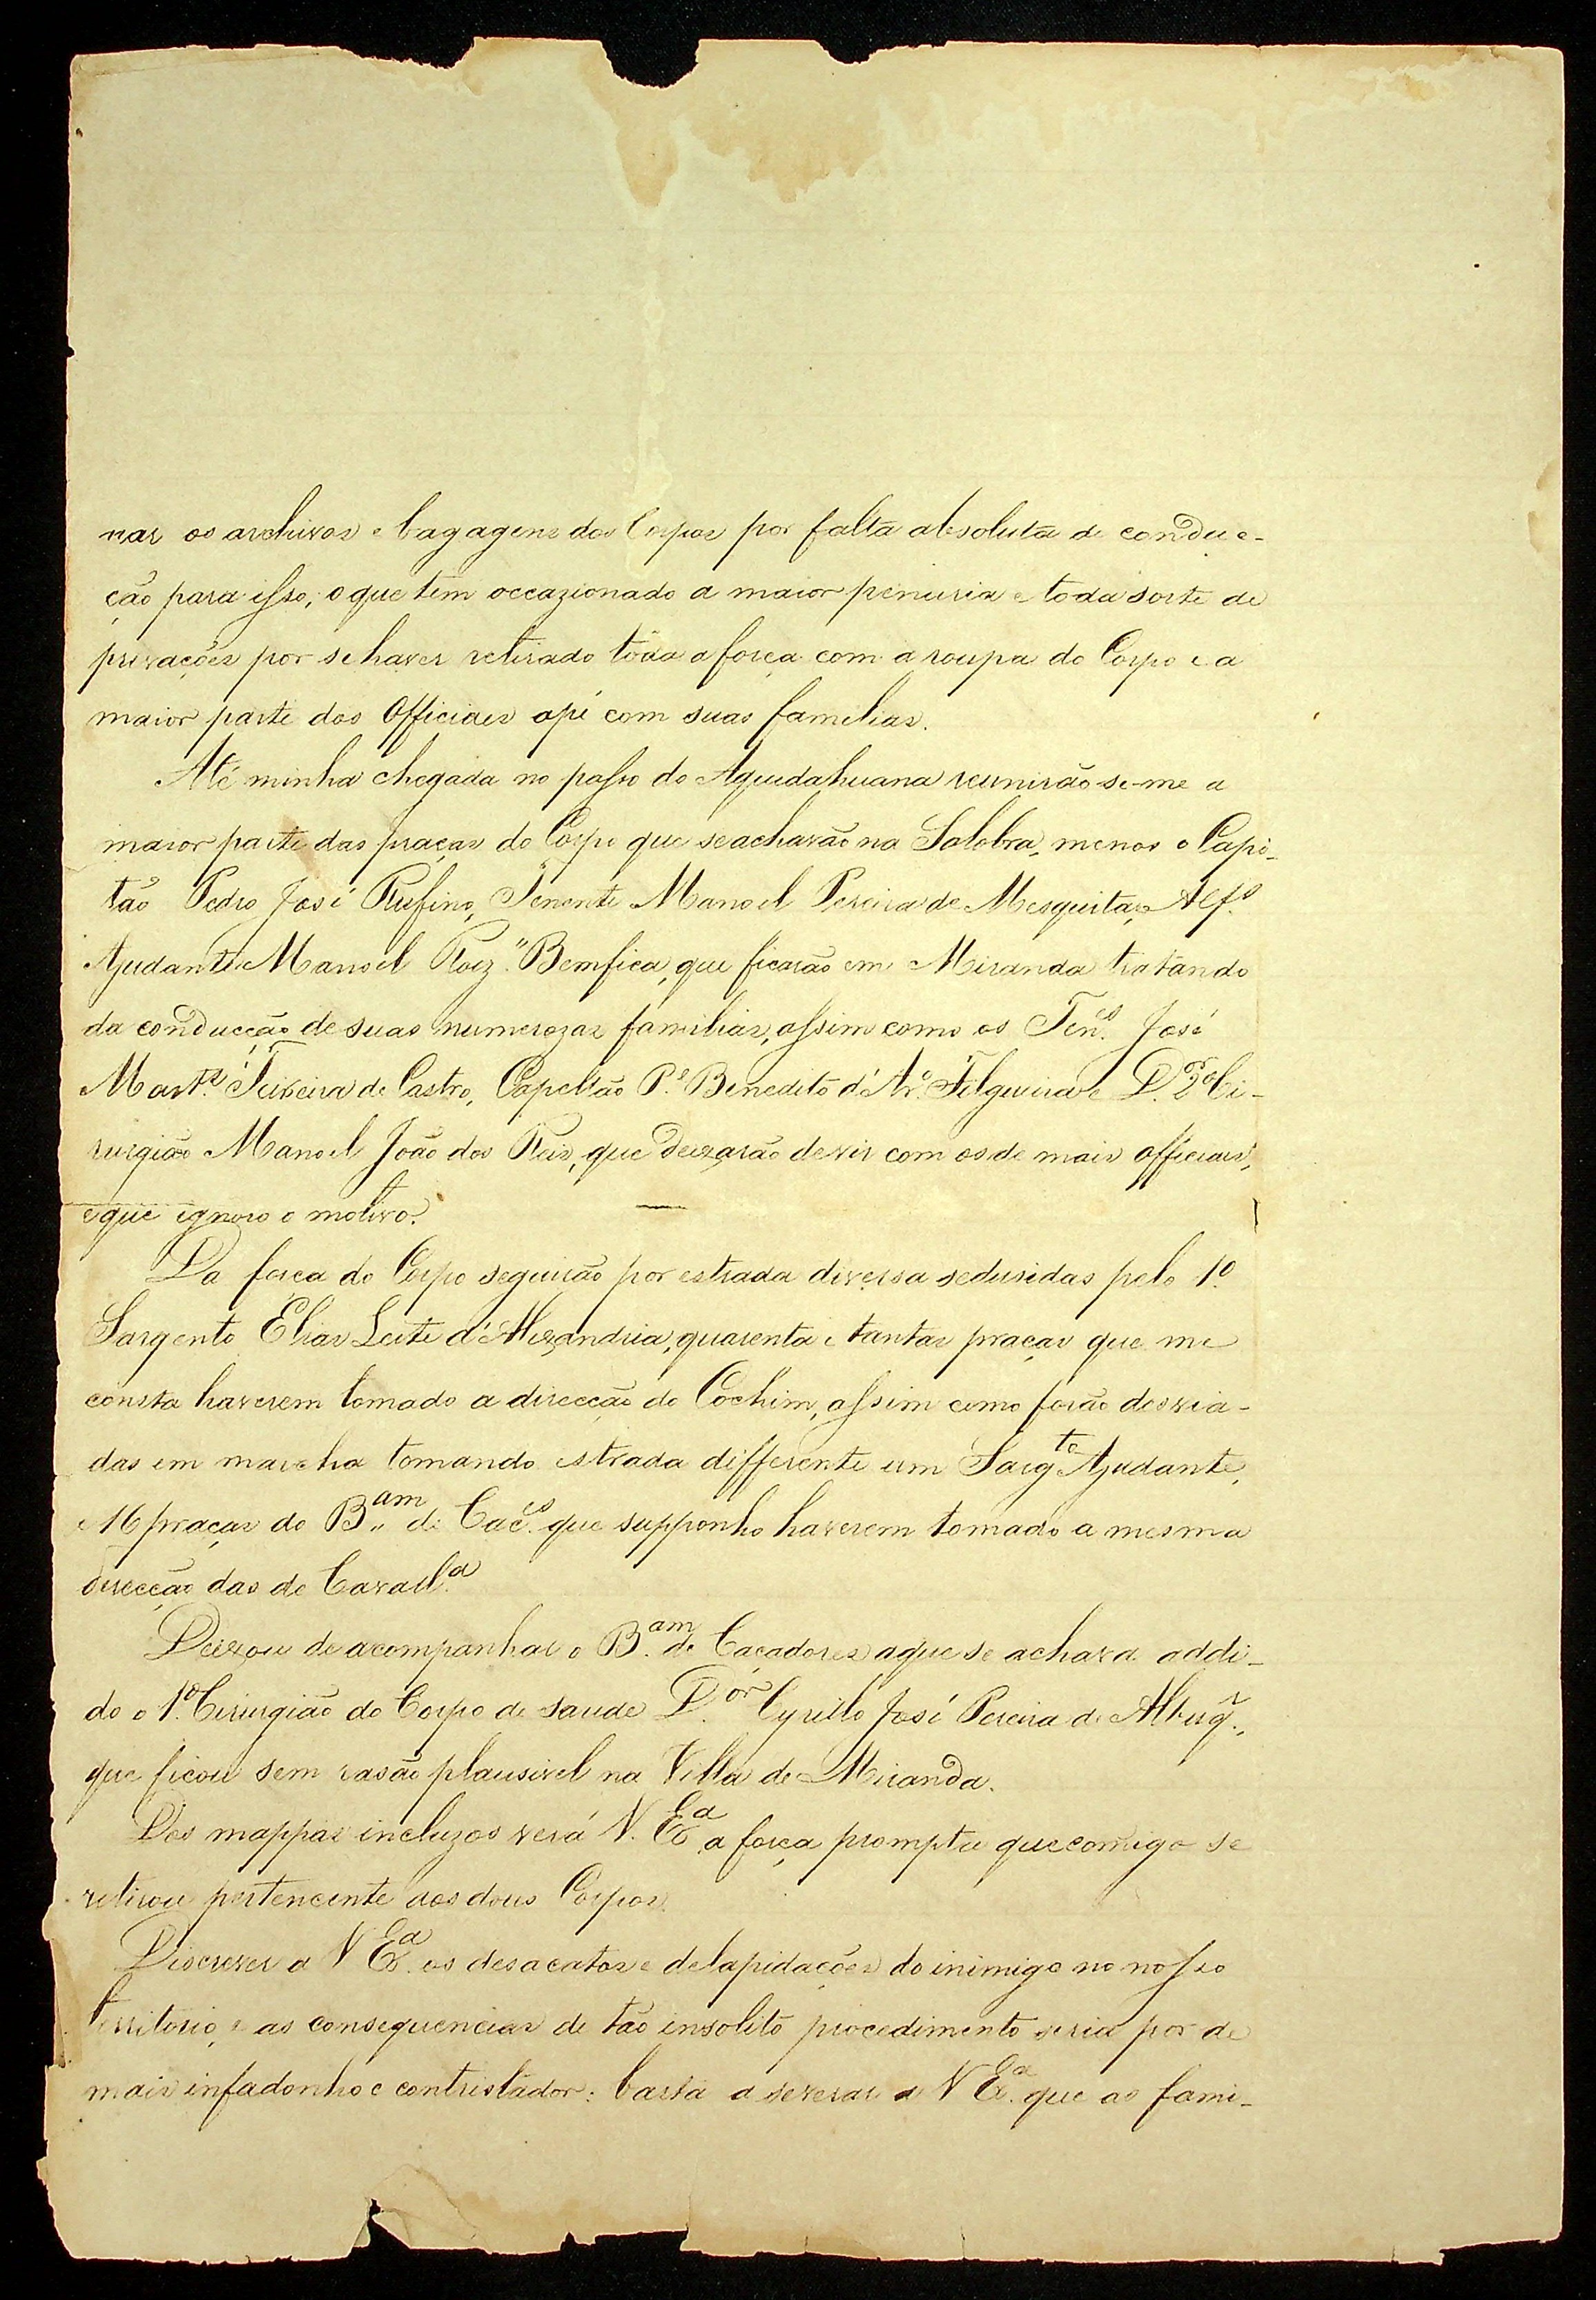 nar os archivos e bagagens dos Corpos por falta absoluta de conduc-
ção para isso; o que tem occazionado a maior penuria e toda sorte de
privações por se haver retirado tôda a força com a roupa do Corpo e a
maior parte dos Officiaes apé com suas familias.
Até minha chegada no passo do Aquidahuana reunirão-se-me a
maior parte das praças do Corpo que se achavão na Salobra, menos o Capi-
tão Pedro José Rufino, Tenente Manoel Pereira de Mesquita, e Alf.s
Ajudante Manoel Roiz" Bemfica, que ficarão em Miranda tratando
da conducção de suas numerozas familias, assim como os Ten.es José
Mart.s Teixeira de Castro, Capellão P.e Benedito d'Ar.o Filgueira e D.or 2.o Ci-
rurgião Manoel João dos Reis, que deixarão de vir com os de mais officiaes,
e que ignoro o motivo.
Da força do Corpo seguirão por estrada diversa sedusidas pelo 1.o
Sargento Elias Leite d'Alexandria, quarenta e tantas praças que me
consta haverem tomado a direcção do Cochim, assim como forão desvia-
das em marcha tomando estrada differente um Sarg.to Ajudante,
16 praças do B.am de Caç.es que supponho haverem tomado a mesma
direcção das de Cavall.a
Deixou de acompanhar o B.am de Caçadores a que se achava addi-
do o 1.o Cirurgião do Corpo de saude D.or Cyrillo José Pereira de Albuq.r,
que ficou sem rasão plausivel na Villa de Miranda.
Dos mappas incluzos verá V. Ex.a a força prompta que comigo se
retirou pertencente aos dous Corpos.
Discrever a V Ex.a os desacatos e delapidações do inimigo no nosso
territorio, e as consequencias de tão insolito procedimento seria por de
mais infadonho e contristador: basta a severar a V Ex.a que as fami-